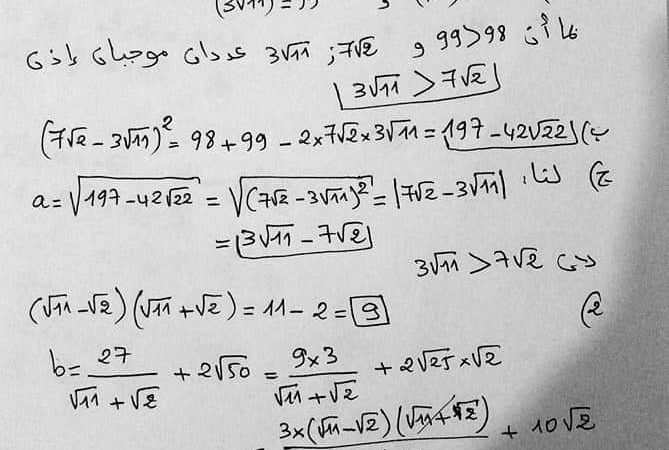 (3√11) = 99 و
بما أن 99>98 و 7√2 ; 3√11 عددان موجبان فإن
3√11 > 7√2
ب) (7√2 - 3√11)² = 98 + 99 - 2×7√2×3√11 = 197 - 42√22
ج) لدينا: a = √(197-42√22) = √((7√2 - 3√11)²) = |7√2 - 3√11|
= 3√11 - 7√2
لأن 3√11 > 7√2
2) (√11 - √2)(√11 + √2) = 11 - 2 = 9
b = 27/(√11 + √2) + 2√50 = (9×3)/(√11 + √2) + 2√25 × √2
3×(√11-√2)(√11+√2) + 10√2